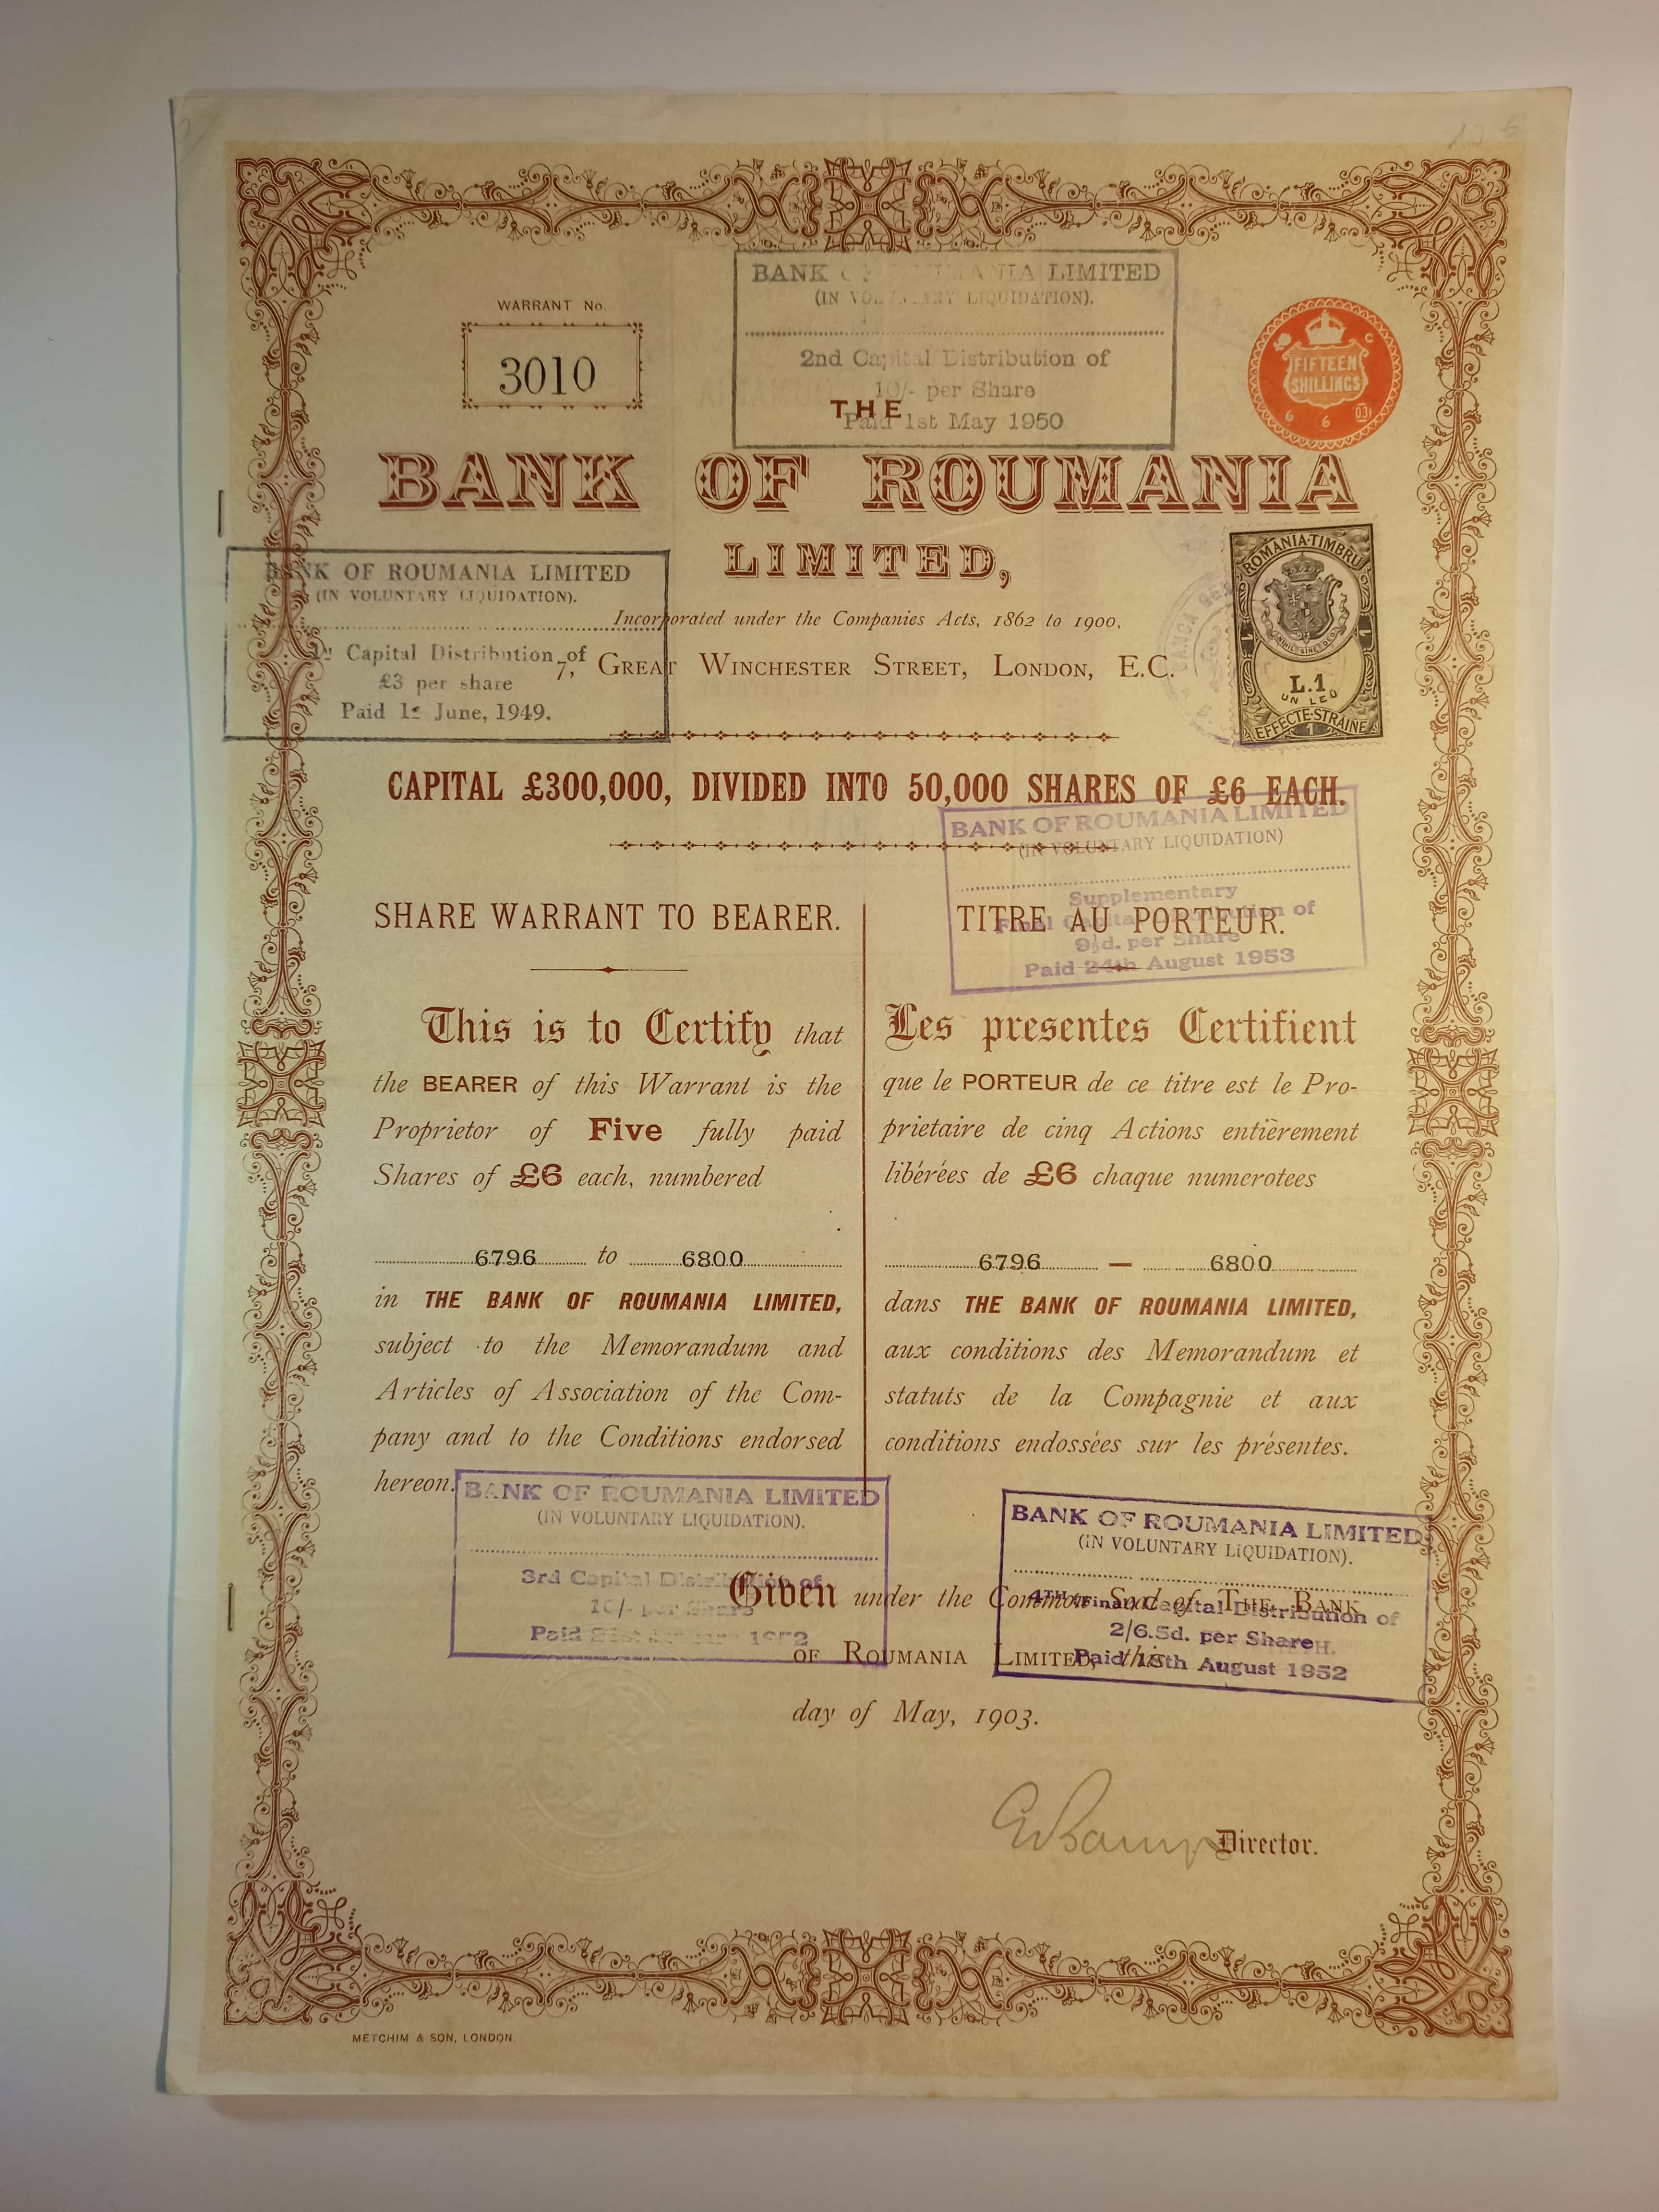 WARRANT No.
3010
BANK LIMITED
(IN VOLUNTARY LIQUIDATION).
2nd Capital Distribution of
10/- per Share
Paid 1st May 1950
FIFTEEN
SHILLINGS
6 6 03
THE
BANK OF ROUMANIA
LIMITED,
Incorporated under the Companies Acts, 1862 to 1900.
7, GREAT WINCHESTER STREET, LONDON, E.C.
BANK OF ROUMANIA LIMITED
(IN VOLUNTARY LIQUIDATION).
Capital Distribution of
£3 per share
Paid 1st June, 1949.
ROMANIA·TIMBRU
NIHIL SINE DEO
1 1
L.1
UN LEU
EFFECTE·STRAINE
1
CAPITAL £300,000, DIVIDED INTO 50,000 SHARES OF £6 EACH.
BANK OF ROUMANIA LIMITED
(IN VOLUNTARY LIQUIDATION)
Supplementary
Final Capital Distribution of
9½d. per Share
Paid 24th August 1953
SHARE WARRANT TO BEARER.
This is to Certify that
the BEARER of this Warrant is the
Proprietor of Five fully paid
Shares of £6 each, numbered
6796 to 6800
in THE BANK OF ROUMANIA LIMITED,
subject to the Memorandum and
Articles of Association of the Com-
pany and to the Conditions endorsed
hereon.
TITRE AU PORTEUR.
Les presentes Certifient
que le PORTEUR de ce titre est le Pro-
prietaire de cinq Actions entièrement
libérées de £6 chaque numerotees
6796 — 6800
dans THE BANK OF ROUMANIA LIMITED,
aux conditions des Memorandum et
statuts de la Compagnie et aux
conditions endossées sur les présentes.
BANK OF ROUMANIA LIMITED
(IN VOLUNTARY LIQUIDATION).
3rd Capital Distribution of
10/- per Share
Paid 1952
BANK OF ROUMANIA LIMITED
(IN VOLUNTARY LIQUIDATION).
4TH (Final) Capital Distribution of
2/6.5d. per Share
Paid 18th August 1952
Given under the Common Seal of THE BANK
OF ROUMANIA LIMITED, this
day of May, 1903.
Director.
METCHIM & SON, LONDON.